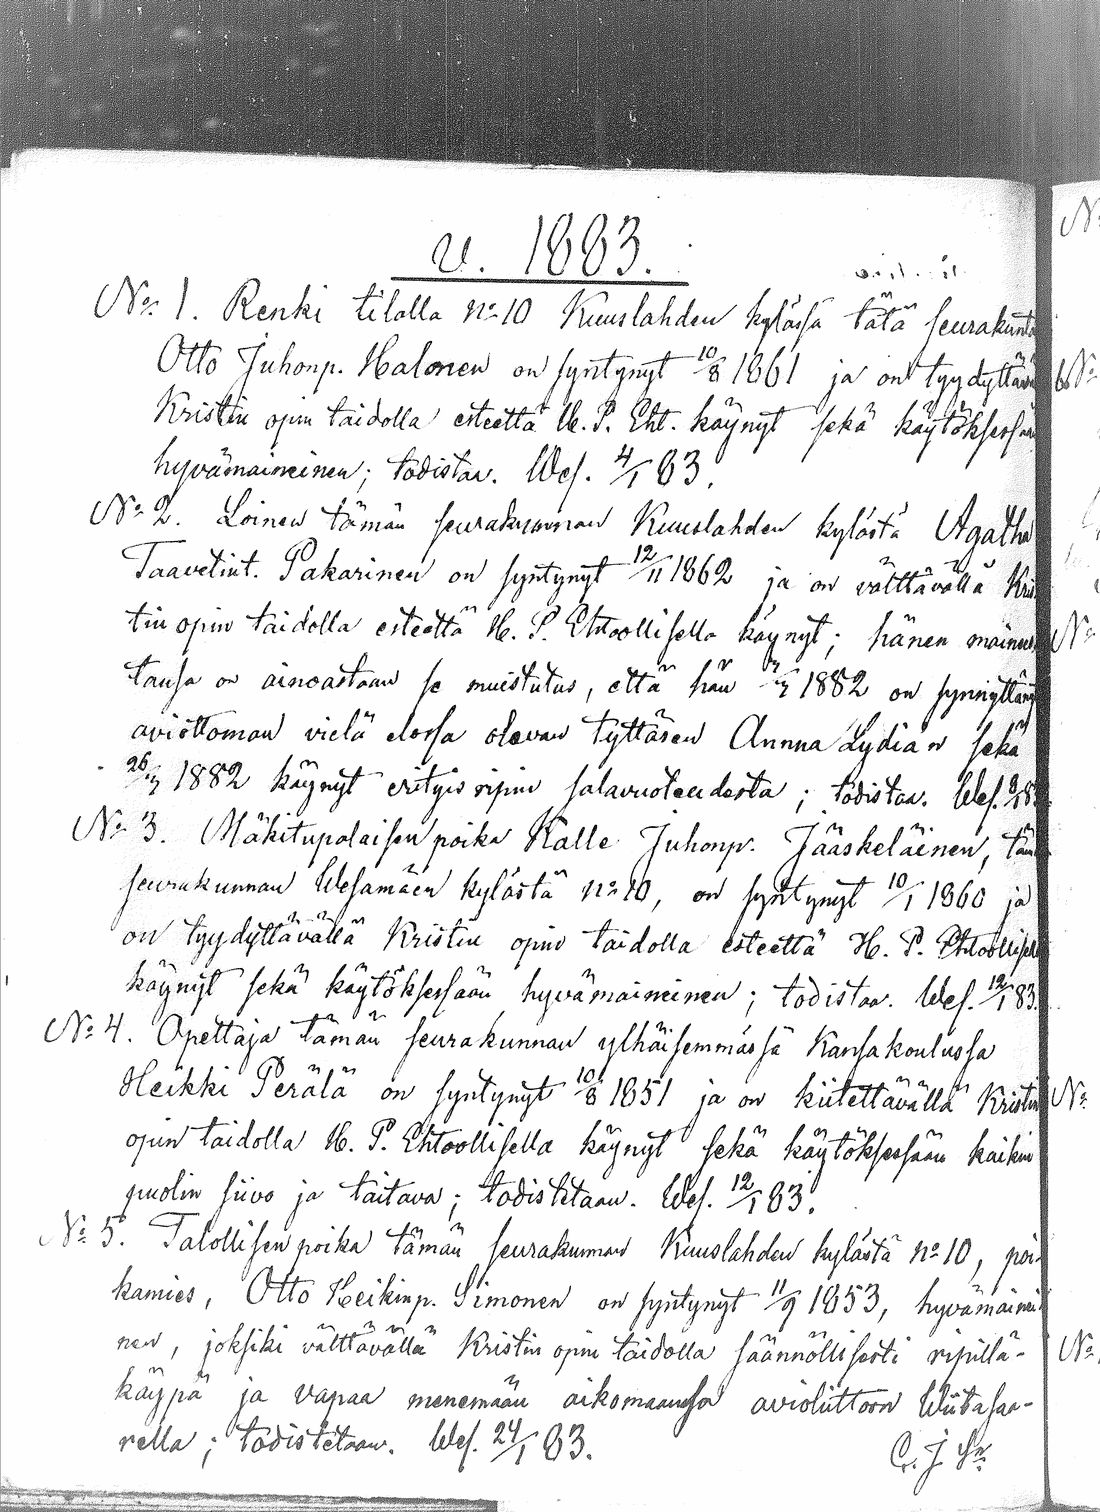 v. 1883.
No 1. Renki tilalla no 10 Kuuslahden kylässä tätä seurakunta
Otto Juhonp. Halonen on syntynyt 10/8 1861 ja on tyydyttävä
Kristin opin taidolla esteettä H. P. Eht. käynyt sekä käytöksessään
hyvämaineinen; todistaa. Wes. 4/1 83.
No 2. Loinen tämän seurakunnan Kuuslahden kylästä Agatha
Taavetint. Pakarinen on syntynyt 12/11 1862 ja on välttävällä Kris
tin opin taidolla esteettä H. P. Ehtoollisella käynyt; hänen mainees
tansa on ainoastaan se muistutus, että hän 1882 on synnyttäny
aviottoman vielä elossa olevan tyttären Annna Lydian sekä
1882 käynyt erityisripin salavuoteudesta; todistaa. Wes.
No 3. Mäkitupalaisen poika Kalle Juhonp. Jääskeläinen, täm
seurakunnan Wesamäen kylästä no 10, on syntynyt 10/1 1860 ja
on tyydyttävällä Kristin opin taidolla esteettä H. P. Ehtoollisella
käynyt sekä käytöksessään hyvämaineinen; todistaa. Wes. 12/1 83.
No 4. Opettaja tämän seurakunnan ylhäisemmässä Kansakoulussa
Heikki Perälä on syntynyt 10/8 1851 ja on kiitettävällä Kristin
opin taidolla H. P. Ehtoollisella käynyt sekä käytöksessään kaikin
puolin siivo ja taitava; todistetaan. Wes. 12/1 83.
No 5. Talollisen poika tämän seurakunnan Kuuslahden kylästä no 10, poi-
kamies, Otto Heikinp. Simonen on syntynyt 11/9 1853, hyvämainei
nen, joksiki välttävällä Kristin opin taidolla säännöllisesti ripillä-
käypä ja vapaa menemään aikomaansa avioliittoon Wiitasaa-
rella; todistetaan. Wes. 24/1 83.
C. J. Sn
No
No
No
No